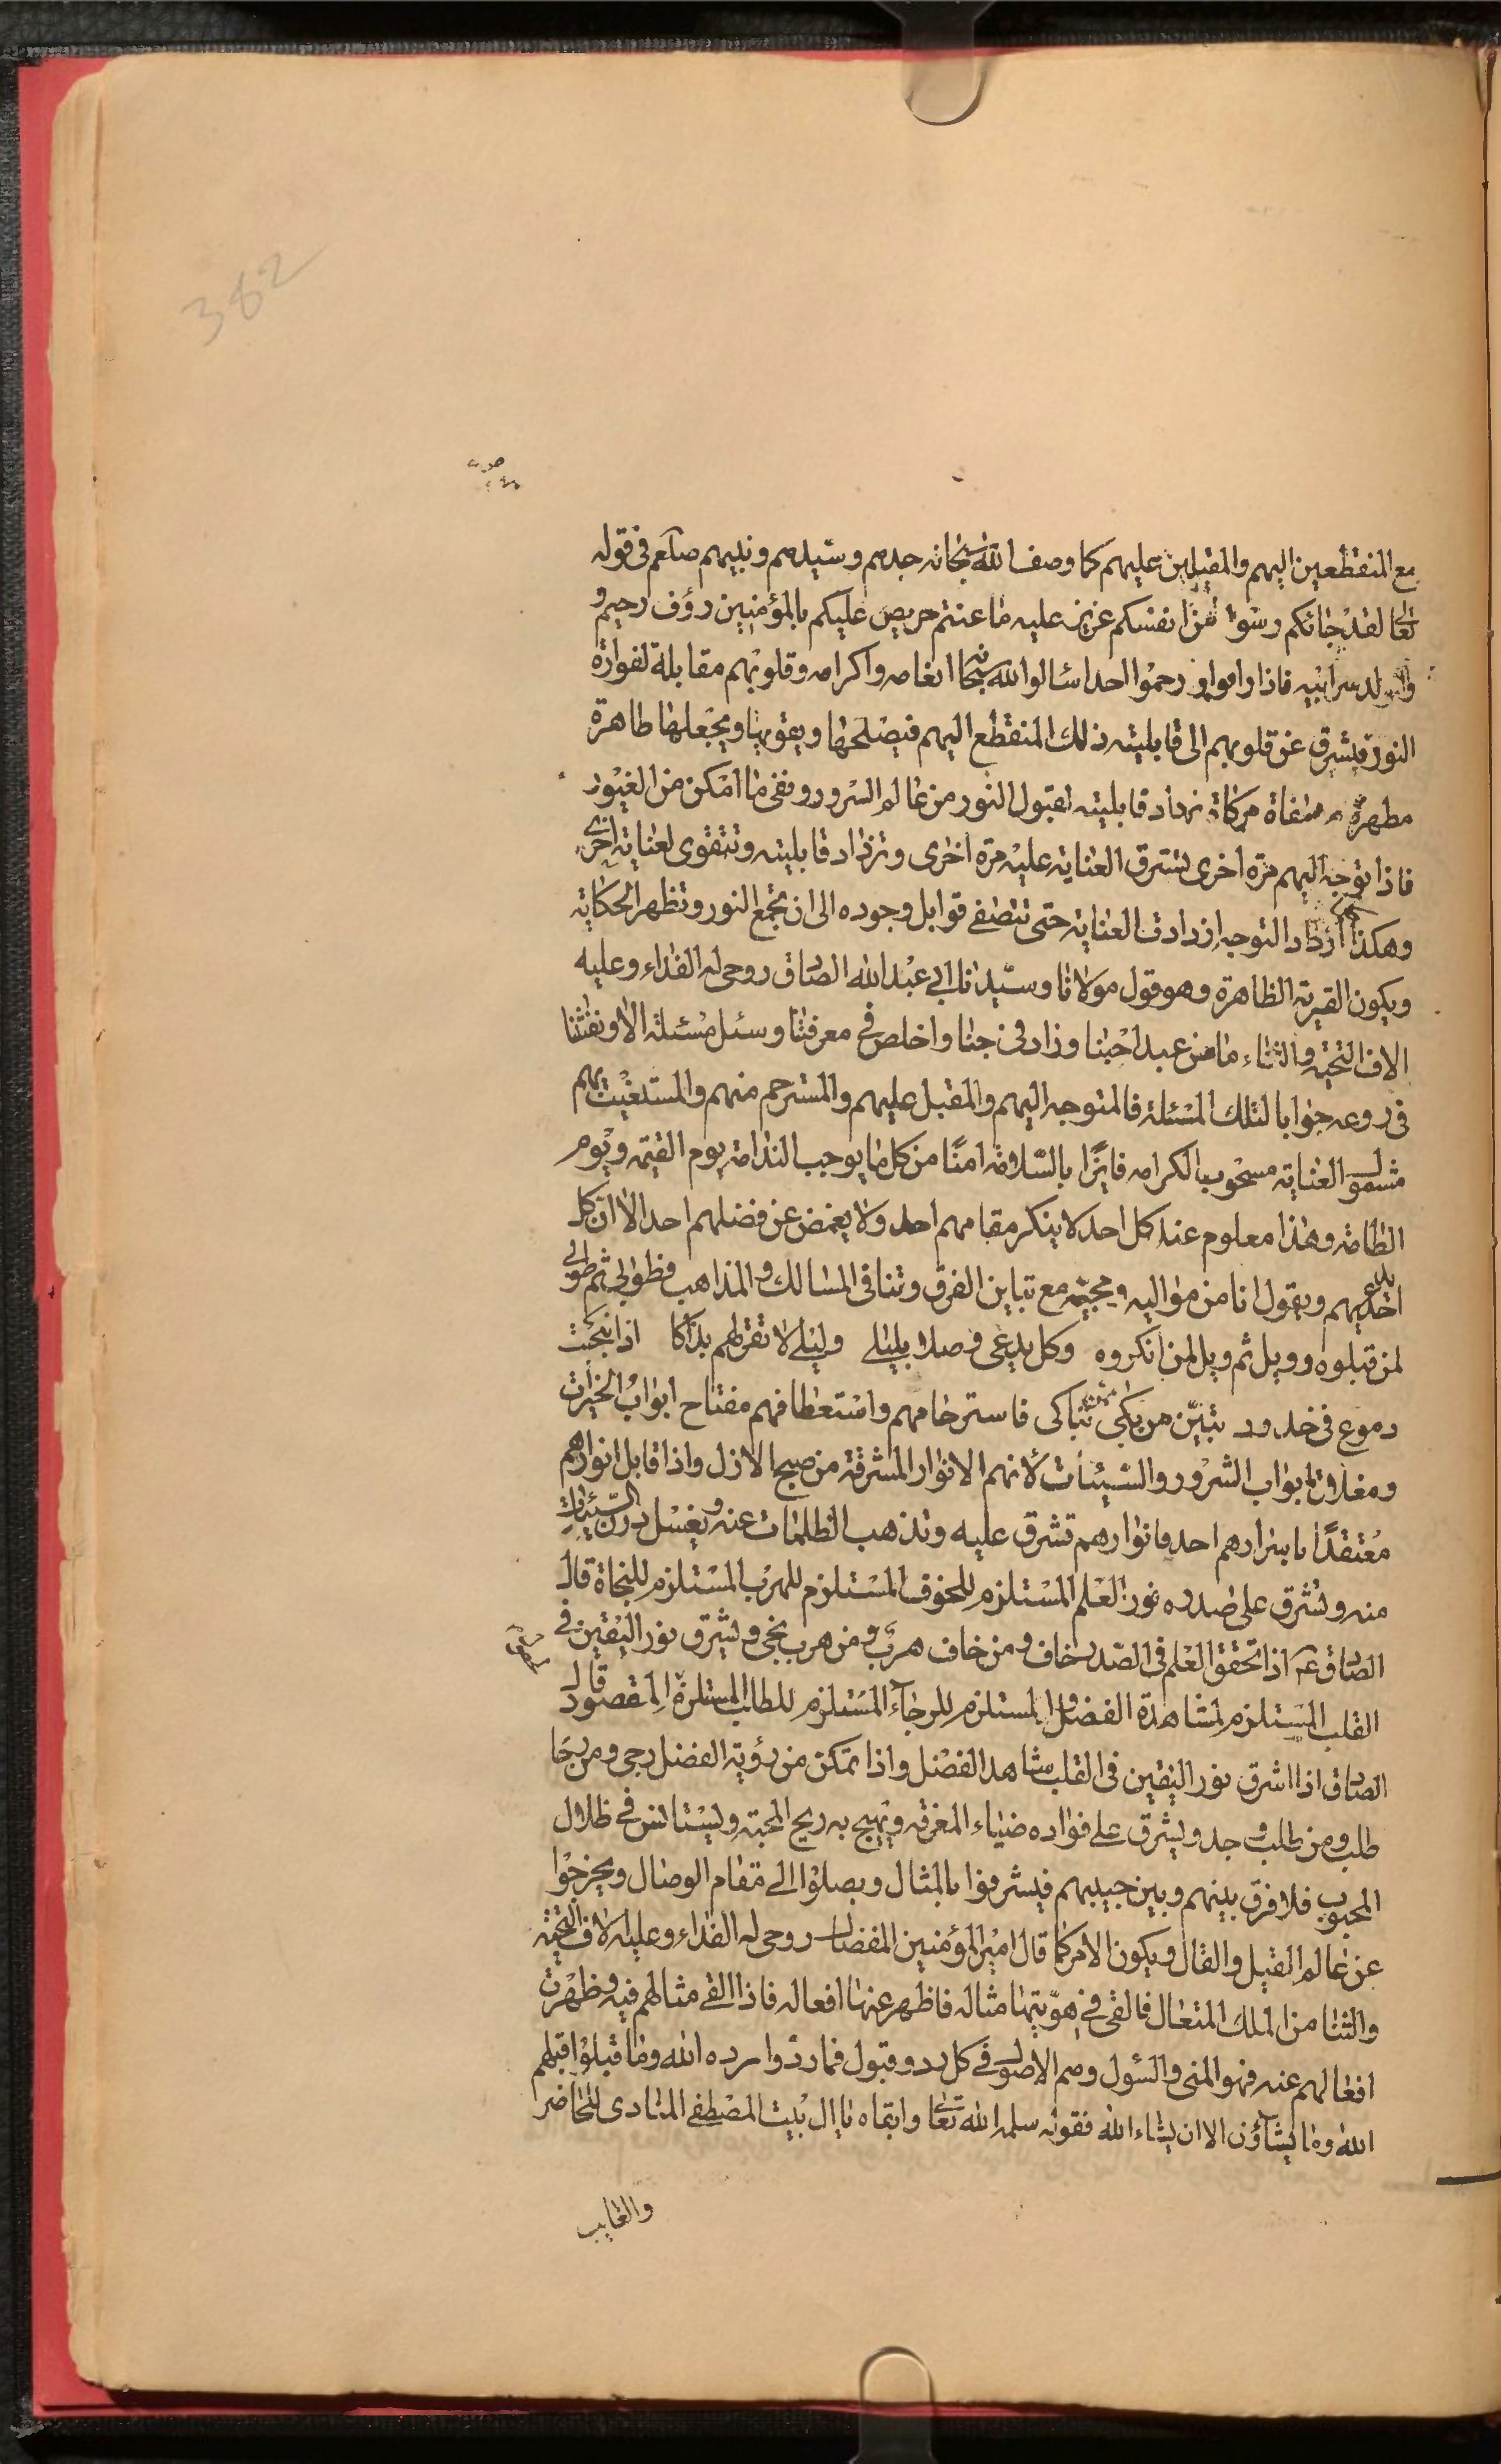 382
مع المنقطعين اليهم والمقبلين عليهم كما وصف الله سبحانه جدهم وسيدهم ونبيهم صلعم في قوله
تعالى لقد جاءكم رسول من انفسكم عزيز عليه ما عنتم حريص عليكم بالمؤمنين رؤف رحيم و
الولد سر ابيه فاذا راموا او رحموا احدا سئالوا الله سبحانه انعامه واكرامه وقلوبهم مقابلة لفوارة
النور فيشرق عن قلوبهم الى قابليته ذلك المنقطع اليهم فيصلحها ويقويها ويجعلها طاهرة
مطهرة مصفاة مزكاة نزداد قابليته لقبول النور من عالم السرور ونفى ما امكن من الغيور
فاذا توجه اليهم مرة اخرى لشرق العناية عليه مرة اخرى وتزداد قابليته وتتقوى لعناية اخرى
وهكذا كلما ازداد التوجه ازدادت العناية حتى تتصفى قوابل وجوده الى ان يجتمع النور وتظهر الحكاية
ويكون القرية الظاهرة وهو قول مولانا وسيدنا ابي عبد الله الصادق روحي له الفداء وعليه
الاف التحية والثناء ما من عبد احبنا وزاد في حبنا واخلص في معرفتنا وسئل مسئلة الا ونفثنا
في روعه جوابا لتلك المسئلة فالمتوجه اليهم والمقبل عليهم والمسترحم منهم والمستغيث بهم
مشمول العناية مصحوب الكرامه فايزا بالسلامة امنا من كل ما يوجب الندامة يوم القيمة ويوم
الطامة وهذا معلوم عند كل احد لا ينكر مقامهم احد ولا يغمض عن فضلهم احد الا ان كل
احد يدعيهم ويقول انا من مواليه ومحبيه مع تباين الفرق وتنافي المسالك والمذاهب فطوبى ثم طوبى
لمن قبلوه وويل ثم ويل لمن انكروه وكل يدعي وصلا بليلى وليلى لا تقر لهم بذاكا اذا انبجست
دموع في خدود تبين من بكى ممن تباكى فاسترحامهم واستعطافهم مفتاح ابواب الخيرات
ومغلاق ابواب الشرور والسيئات لانهم الانوار المشرقة من صبح الازل واذا قابل انوارهم
معتقدا باسرارهم احد فانوارهم تشرق عليه وتذهب الظلمات عنه ويغسل درن السيئات
منه وتشرق على صدره نور العلم المستلزم للخوف المستلزم للهرب المستلزم للنجاة قال
الصادق ع اذا تحقق العلم في الصدر خاف ومن خاف هرب ومن هرب نجى ويشرق نور اليقين في
القلب المستلزم لمشاهدة الفضل المستلزم للرجاء المستلزم للطلب المستلزم المقصود قال
الصادق اذا اشرق نور اليقين في القلب شاهد الفضل واذا تمكن من رؤية الفضل رجى ومن رجا
طلب ومن طلب وجد ويشرق على فؤاده ضياء المعرفة ويهيج به ريح المحبة ويستانس في ظلال
المحبوب فلا فرق بينهم وبين حبيبهم فيشرفوا بالمثال ويصلوا الى مقام الوصال ويخرجوا
عن عالم القيل والقال ويكون الامر كما قال امير المؤمنين المفضال روحي له الفداء وعليه الاف التحية
والثنا من الملك المتعال فالقى في هويتها مثاله فاظهر عنها افعاله فاذا القى مثالهم فيه وظهرت
افعالهم عنه فهو المنى والسئول وهم الاصول في كل رد وقبول فما ردوا رده الله وما قبلوا قبلهم
الله وما يشاؤن الا ان يشاء الله فقوله سلمه الله تعالى وابقاه يا ال بيت المصطفى المنادى للحاضر
والغايب